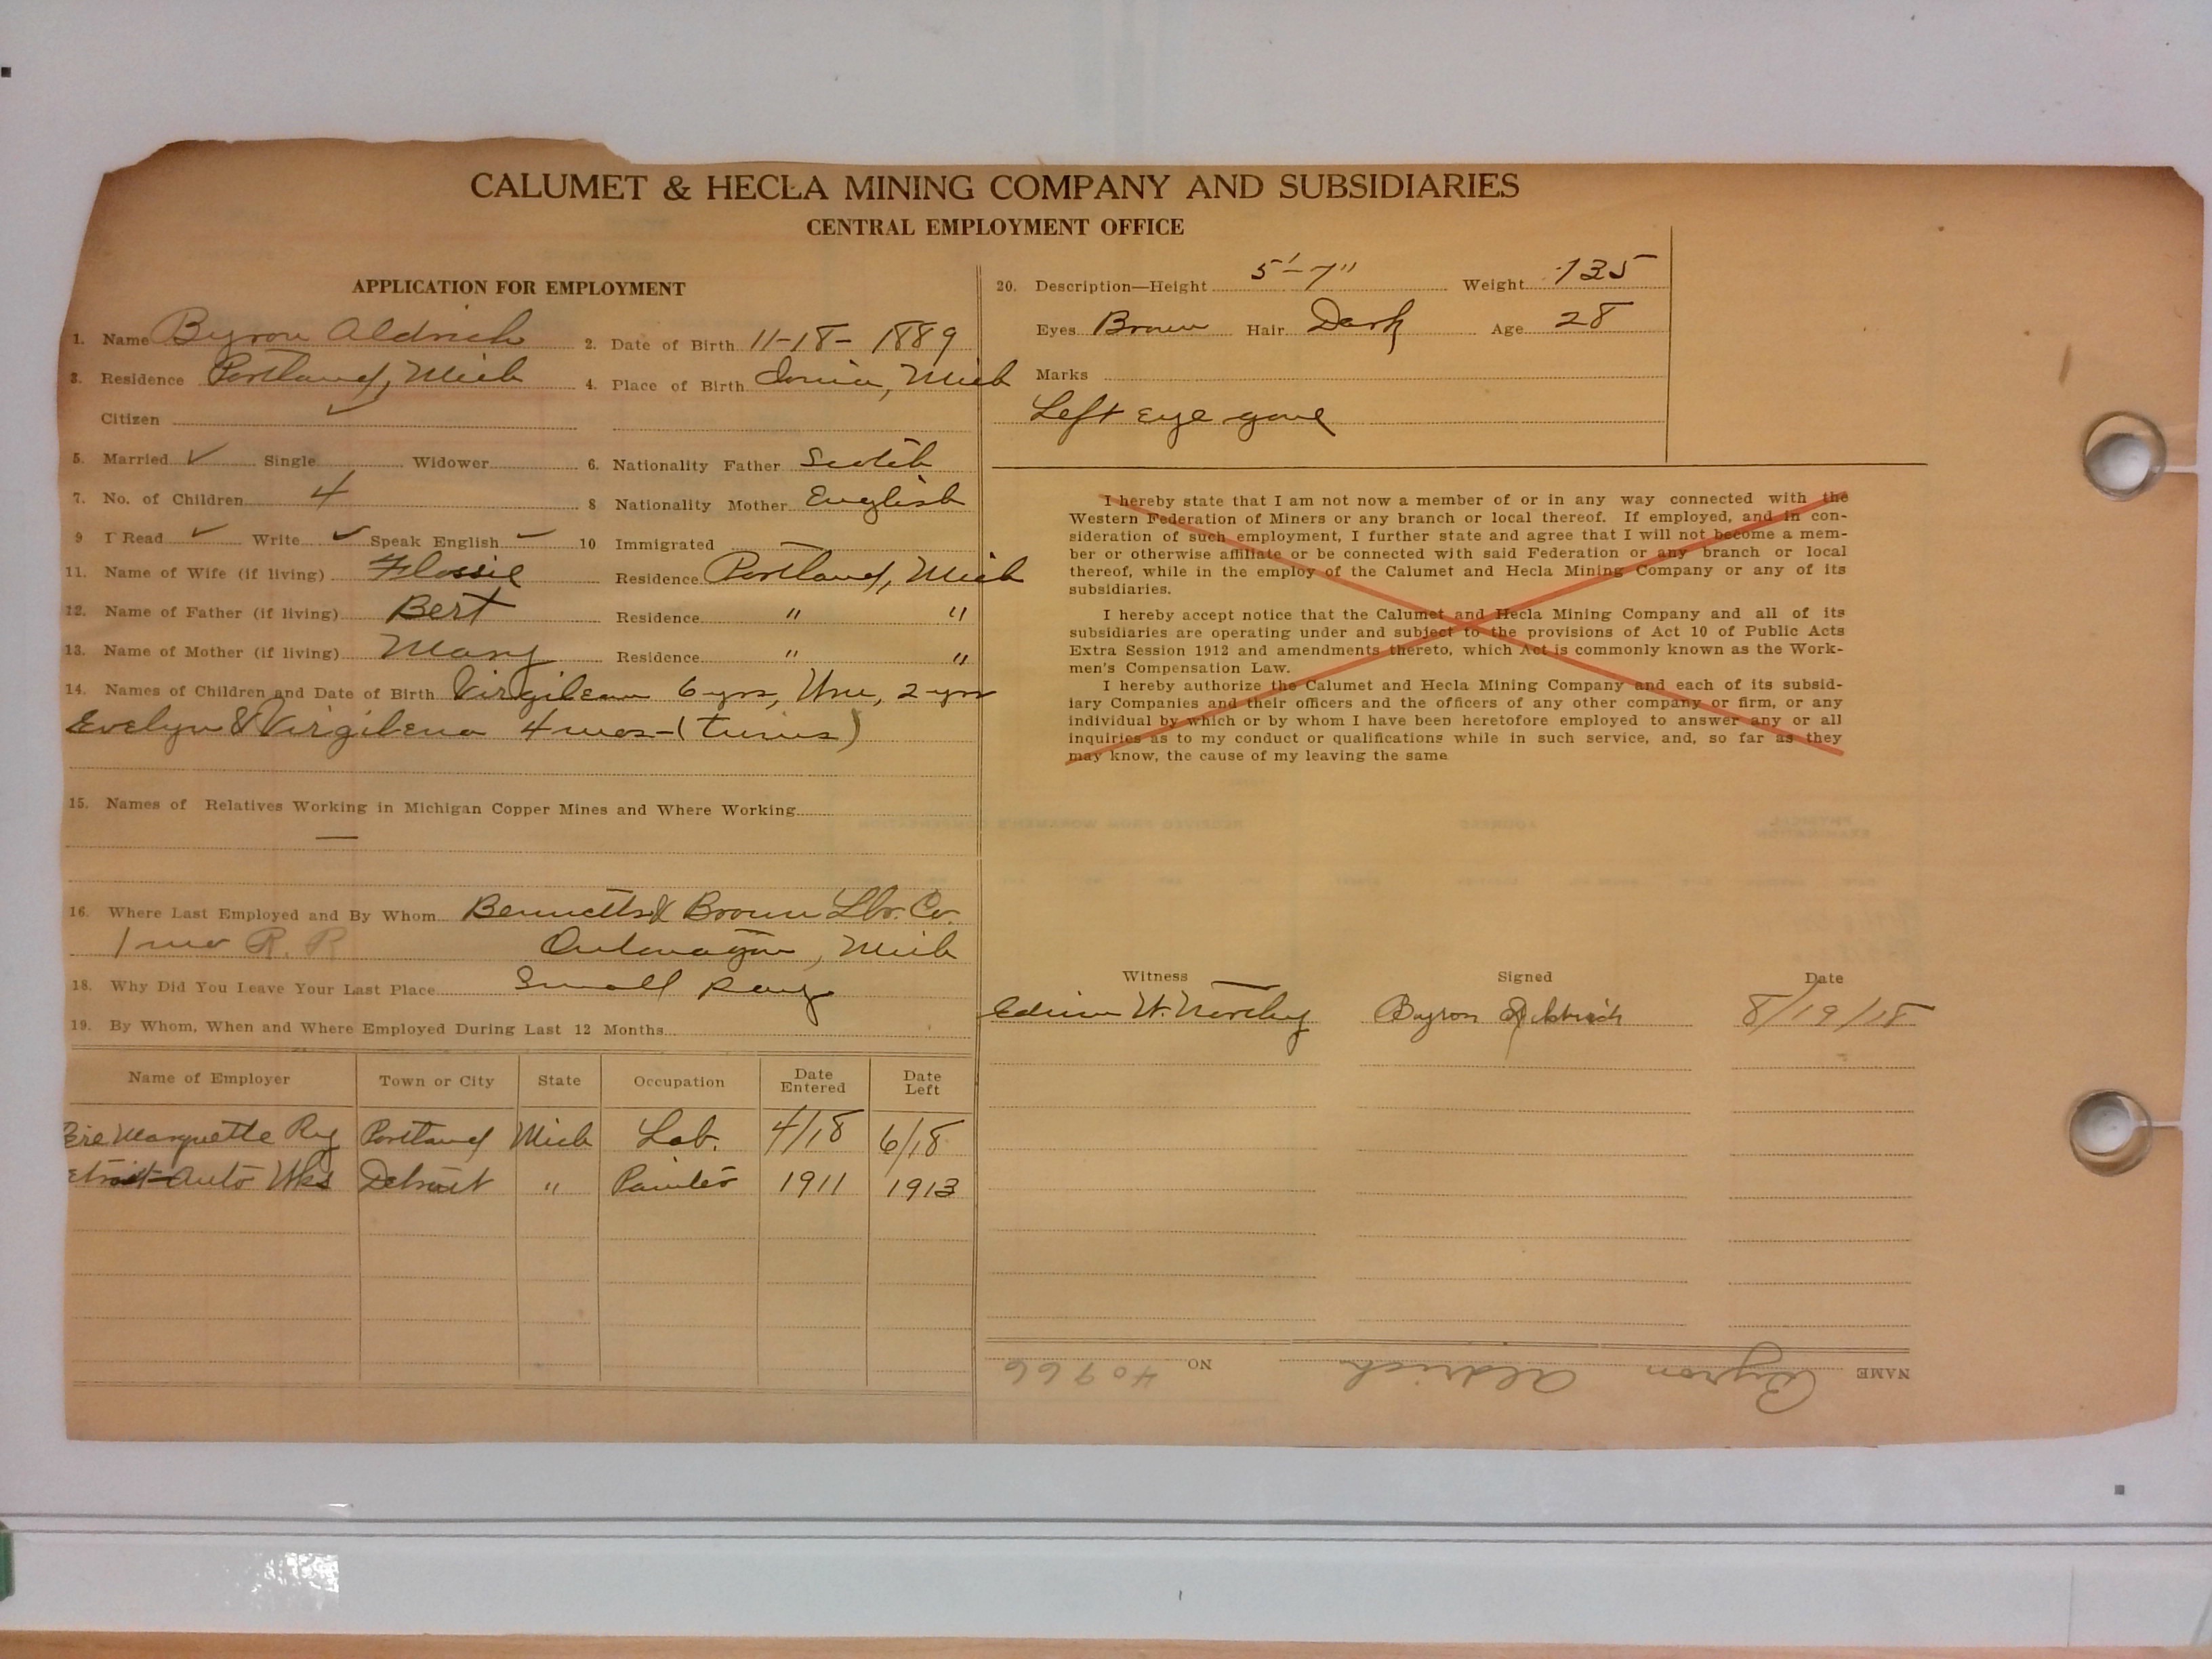 CALUMET & HECLA MINING COMPANY AND SUBSIDIARIES
CENTRAL EMPLOYMENT OFFICE
APPLICATION FOR EMPLOYMENT
1. Name Byron Aldrich 2. Date of Birth 11-18-1889
3. Residence Portland, Mich 4. Place of Birth Ionia, Mich
Citizen ✓
5. Married ✓ Single Widower 6. Nationality Father Scotch
7. No. of Children 4 8 Nationality Mother English
9 I Read ✓ Write ✓ Speak English ✓ 10 Immigrated —
11. Name of Wife (if living) Flossie Residence Portland, Mich
12. Name of Father (if living) Bert Residence " "
13. Name of Mother (if living) Mary Residence " "
14. Names of Children and Date of Birth 6 yrs, 2 yrs
Evelyn & Virgilena 4 mos - (twins)
15. Names of Relatives Working in Michigan Copper Mines and Where Working
—
16. Where Last Employed and By Whom Bennetts & Brown Lbr. Co.
1 mo R. R Ontonagon, Mich
18. Why Did You Leave Your Last Place Small pay
19. By Whom, When and Where Employed During Last 12 Months
Name of Employer Town or City State Occupation Date Entered Date Left
Pere Marquette Ry Portland Mich Lab. 4/18 6/18
etroit Auto Wks Detroit " Painter 1911 1913
20. Description—Height 5'-7" Weight 135
Eyes Brown Hair Dark Age 28
Marks
Left eye gone
I hereby state that I am not now a member of or in any way connected with the
Western Federation of Miners or any branch or local thereof. If employed, and in con-
sideration of such employment, I further state and agree that I will not become a mem-
ber or otherwise affiliate or be connected with said Federation or any branch or local
thereof, while in the employ of the Calumet and Hecla Mining Company or any of its
subsidiaries.
I hereby accept notice that the Calumet and Hecla Mining Company and all of its
subsidiaries are operating under and subject to the provisions of Act 10 of Public Acts
Extra Session 1912 and amendments thereto, which Act is commonly known as the Work-
men's Compensation Law.
I hereby authorize the Calumet and Hecla Mining Company and each of its subsid-
iary Companies and their officers and the officers of any other company or firm, or any
individual by which or by whom I have been heretofore employed to answer any or all
inquiries as to my conduct or qualifications while in such service, and, so far as they
may know, the cause of my leaving the same
Witness Signed Date
Edwin W. Byron Aldrich 8/19/18
NAME Byron Aldrich NO 40966